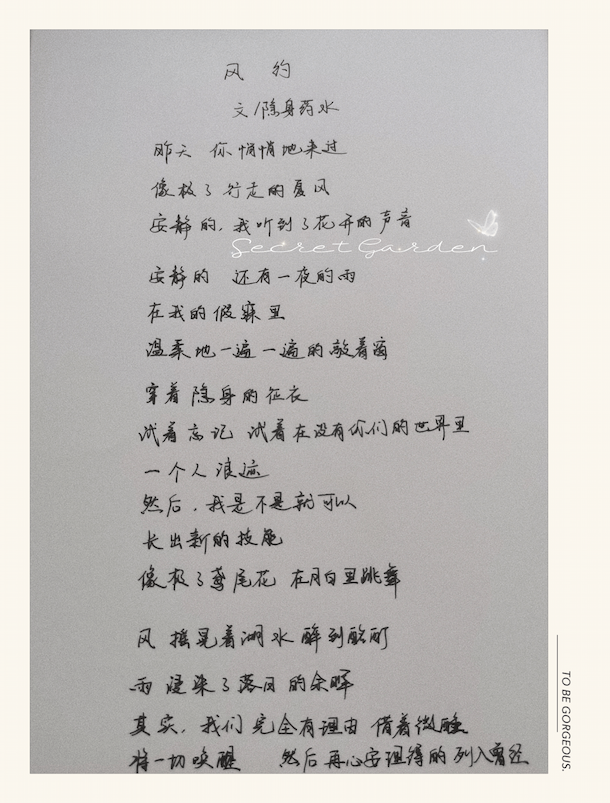 风 约
文/隐身药水
昨天 你悄悄地来过
像极了行走的夏风
安静的,我听到了花开的声音
Secret Garden
安静的 还有一夜的雨
在我的假寐里
温柔地一遍一遍的敲着窗
穿着隐身的征衣
试着忘记 试着在没有你们的世界里
一个人浪迹
然后,我是不是就可以
长出新的技能
像极了鸢尾花 在月白里跳舞
风 摇晃着湖水 醉到酩酊
雨 浸染了落日的余晖
其实,我们完全有理由 借着微醺
将一切唤醒 然后再心安理得的列入曾经
TO BE GORGEOUS.